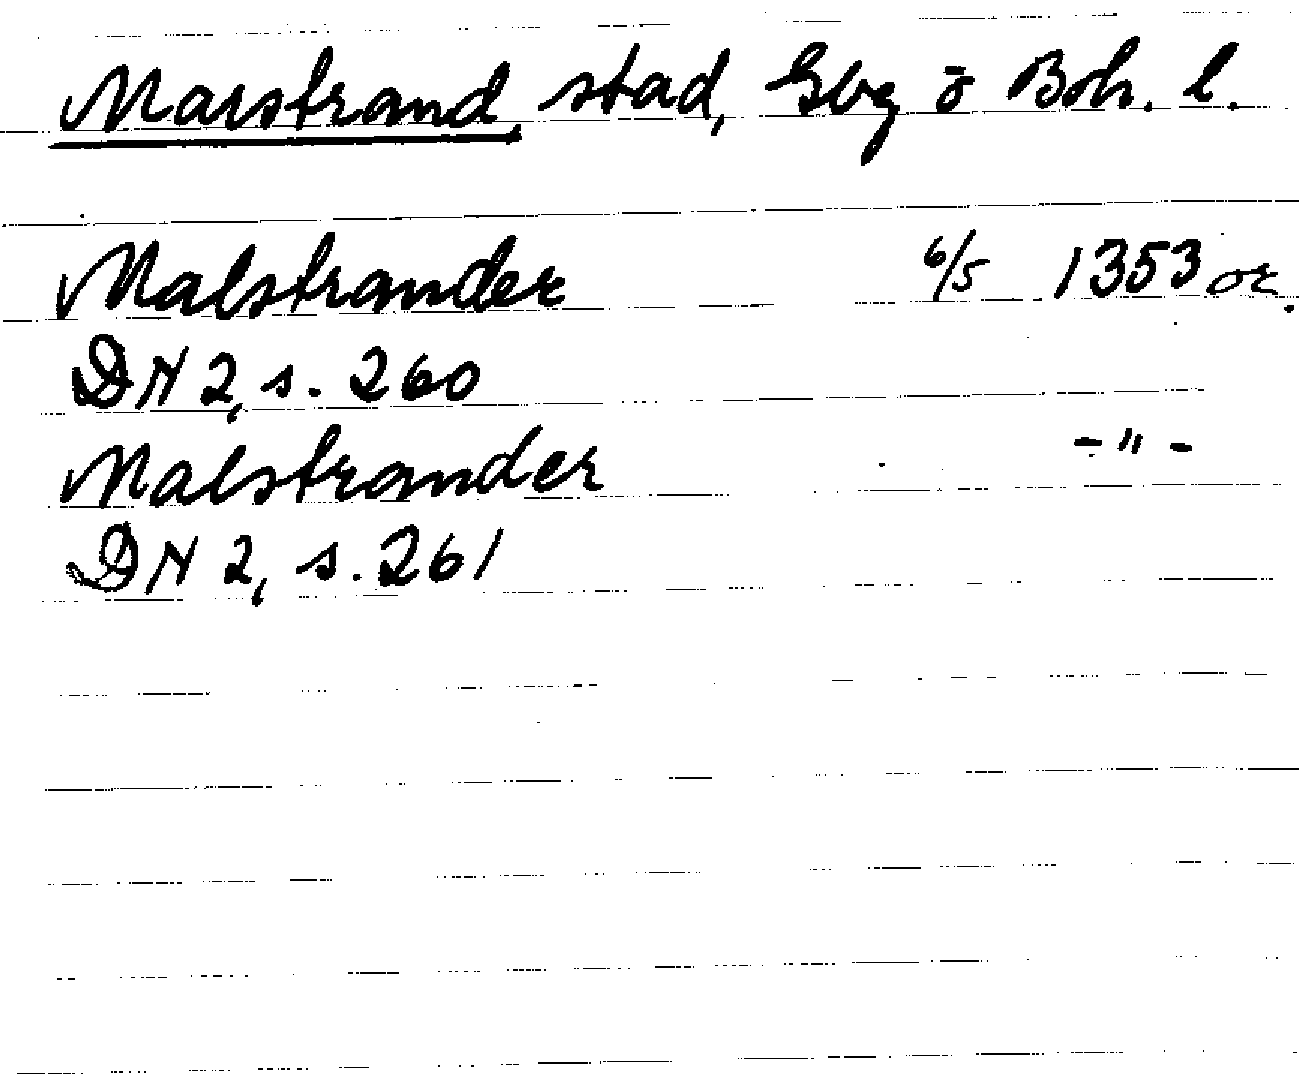 Marstrand, stad, Gbg o Boh. l.
Malstrander 6/5 1353 or.
DN 2, s. 260
Malstrander -"-
DN 2, s. 261